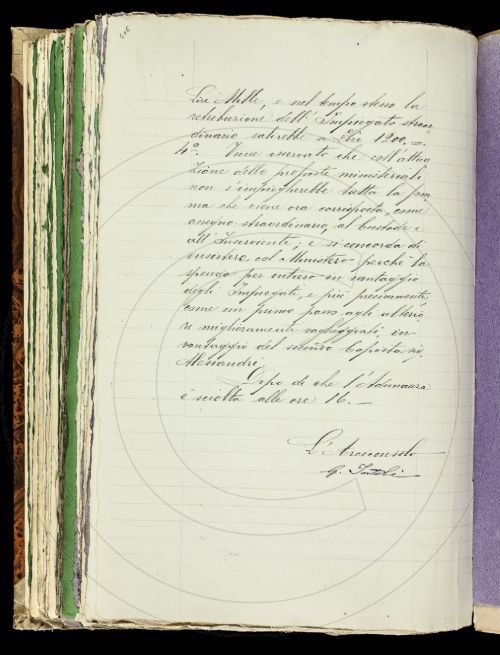 406
Lire Mille, e nel tempo stesso la
retribuzione dell'Impiegato straor
dinario salirebbe a Lire 1200.=
4º. Viene osservato che coll'attua
zione delle proposte ministeriali
non s'impiegherebbe tutta la som
ma che viene ora corrisposta, come
assegno straordinario, al Custode e
all'Inserviente; e si concorda di
insistere col Ministero perchè la
spenda per intiero in vantaggio
degli Impiegati, e più precisamente,
come un primo passo agli ulterio
ri miglioramenti vagheggiati in
vantaggio del secondo Copista sig.
Alessandri.
Dopo di che l'Adunanza
è sciolta alle ore 16. —
L'Arciconsolo
G.